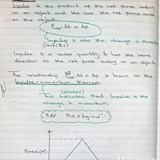 Impulse is the product of the net force acting
on an object and the time the net force acts
on the object.
Fnet·Δt = Δp
Impulse is also the change in
Impulse is a vector quantity & has the same
direction as the net force acting on an object.
The relationship Fnet·Δt = Δp is known as the
Impulse-momentum theorem.
This indicates that Impulse is the
change in momentum
Force (N)